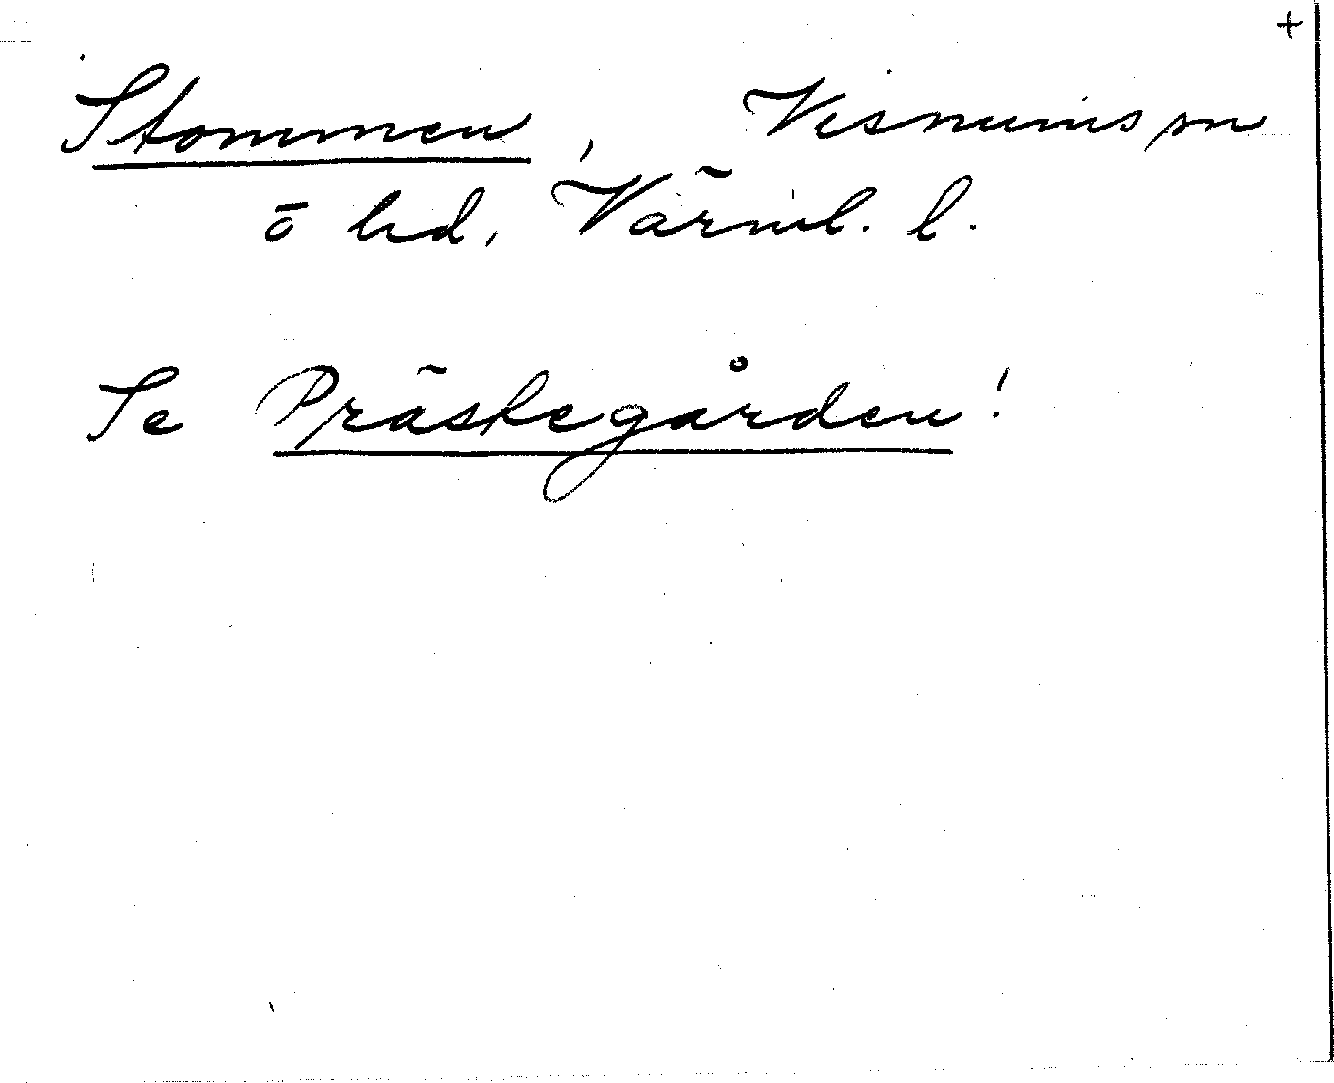 +
Stommen, Visnums sn
ö hd, Värml. l.
Se Prästegården!